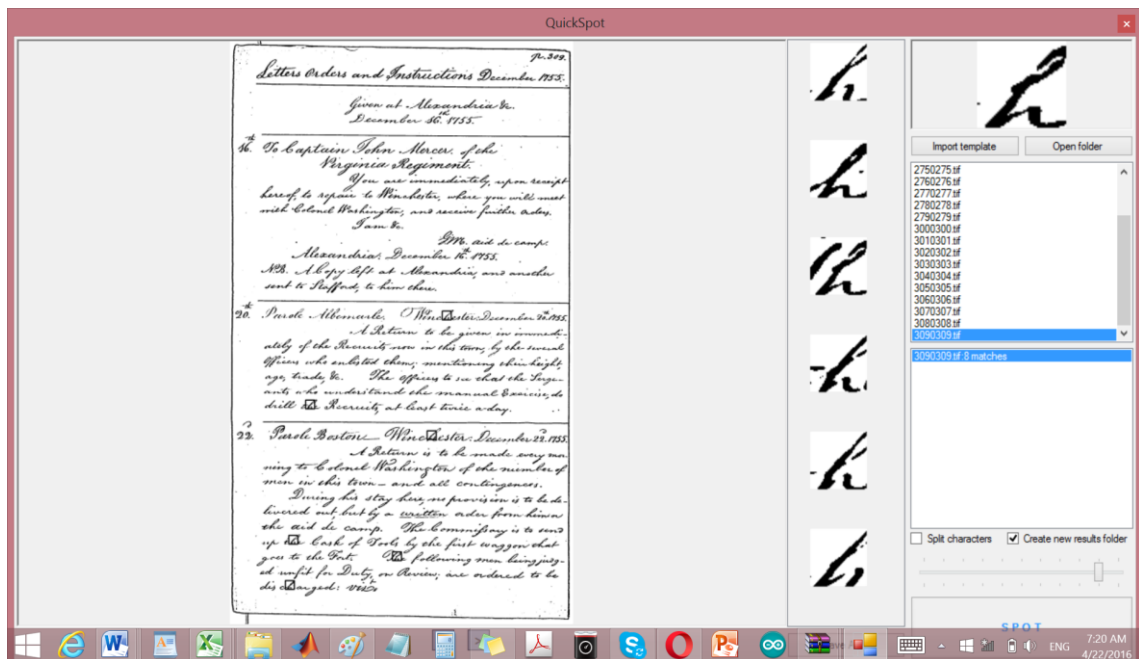 QuickSpot
p. 309.
Letters Orders and Instructions December 1755.
Given at Alexandria &c.
December 16.th 1755.
16.th To Captain John Mercer, of the
Virginia Regiment.
You are immediately, upon receipt
hereof, to repair to Winchester, where you will meet
with Colonel Washington, and receive further orders.
I am &c.
GM. aid de camp.
Alexandria, December 16.th 1755.
NB. A Copy left at Alexandria, and another
sent to Stafford, to him there.
20.th Parole Albemarle. Winchester: December 20.th 1755.
A Return to be given in immedi-
ately of the Recruits now in this town, by the several
Officers who enlisted them; mentioning their height,
age, trade, &c. The officers to see that the Serge-
ants who understand the manual Exercise, do
drill the Recruits, at least twice a day.
22. Parole Boston — Winchester: December 22. 1755.
A Return is to be made every mor-
ning to Colonel Washington of the number of
men in this town — and all contingences.
During his stay here, no provision is to be de-
livered out, but by a written order from him or
the aid de camp. The Commissary is to send
up the Cask of Tools by the first waggon that
goes to the Fort. The following men being judg-
ed unfit for Duty, on Review; are ordered to be
discharged: vizt.
h
h
h
h
h
h
h
Import template Open folder
2750275.tif
2760276.tif
2770277.tif
2780278.tif
2790279.tif
3000300.tif
3010301.tif
3020302.tif
3030303.tif
3040304.tif
3050305.tif
3060306.tif
3070307.tif
3080308.tif
3090309.tif
3090309.tif:8 matches
Split characters Create new results folder
SPOT
7:20 AM
ENG
4/22/2016